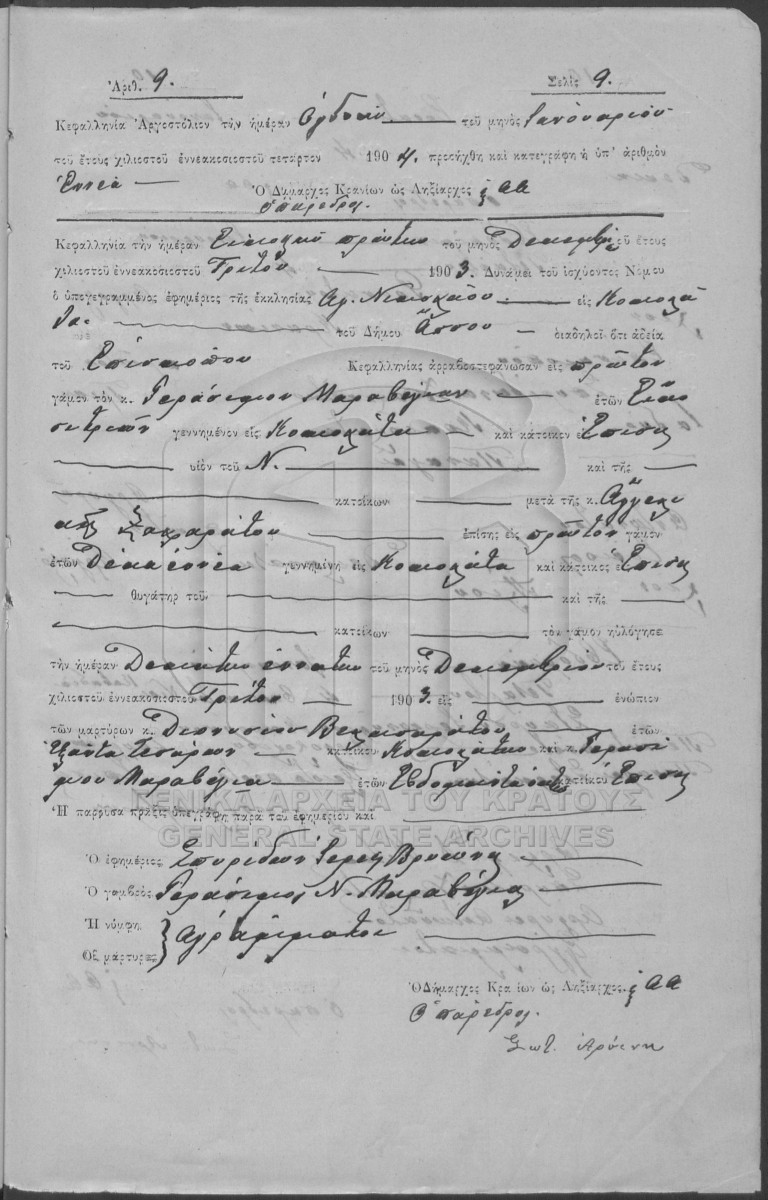 Ἀριθ. 9. Σελὶς 9.
Κεφαλληνία Ἀργοστόλιον τὴν ἡμέραν Ὀγδόην τοῦ μηνὸς Ἰανουαρίου
τοῦ ἔτους χιλιοστοῦ ἐννεακοσιοστοῦ τετάρτου 1904. προσήχθη καὶ κατεγράφη ἡ ὑπ' ἀριθμὸν
Ἐννέα
Ὁ Δήμαρχος Κρανίων ὡς Ληξίαρχος
Ὁ πάρεδρος.
Κεφαλληνία τὴν ἡμέραν Εἰκοστὴν πρώτην τοῦ μηνὸς Δεκεμβρίου τοῦ ἔτους
χιλιοστοῦ ἐννεακοσιοστοῦ Τρίτου 1903. Δυνάμει τοῦ ἰσχύοντος Νόμου
ὁ ὑπογεγραμμένος ἐφημέριος τῆς ἐκκλησίας Ἁγ. Νικολάου εἰς Κοκολά
τα. τοῦ Δήμου διαδηλοῖ ὅτι ἀδεία
τοῦ Ἐπισκόπου Κεφαλληνίας ἀρραβοστεφάνωσαν εἰς πρῶτον
γάμον τὸν κ. Γεράσιμον Μαραβέγιαν ἐτῶν Εἴκο
σι τριῶν γεννημένον εἰς Κοκολάτα καὶ κάτοικον
υἱὸν τοῦ Ν. καὶ τῆς
κατοίκων μετὰ τῆς κ. Ἀγγελι
κῆς Ζακαράτου ἐπίσης εἰς πρῶτον γάμον
ἐτῶν Δέκα ἐννέα γεννημένη εἰς Κοκολάτα καὶ κάτοικος
θυγάτηρ τοῦ καὶ τῆς
κατοίκων τὸν γάμον ηὐλόγησε
τὴν ἡμέραν Δεκάτην ἐννάτην τοῦ μηνὸς Δεκεμβρίου τοῦ ἔτους
χιλιοστοῦ ἐννεακοσιοστοῦ Τρίτου 1903. εἰς ἐνώπιον
τῶν μαρτύρων κ. Διονυσίου ἐτῶν
Ἑξήντα τεσσάρων κατοίκου Κοκολάτων καὶ κ. Γερασί
μου Μαραβέγια ἐτῶν κατοίκου
Ἡ παροῦσα πρᾶξις ὑπεγράφη παρὰ τοῦ ἐφημερίου καὶ
ΓΕΝΙΚΑ ΑΡΧΕΙΑ ΤΟΥ ΚΡΑΤΟΥΣ
GENERAL STATE ARCHIVES
Ὁ ἐφημέριος Σπυρίδων Ἱερεὺς
Ὁ γαμβρὸς Γεράσιμος Ν. Μαραβέγιας
Ἡ νύμφη
Οἱ μάρτυρες ἀγράμματοι
Ὁ Δήμαρχος Κρανίων ὡς Ληξίαρχος
Ὁ πάρεδρος.